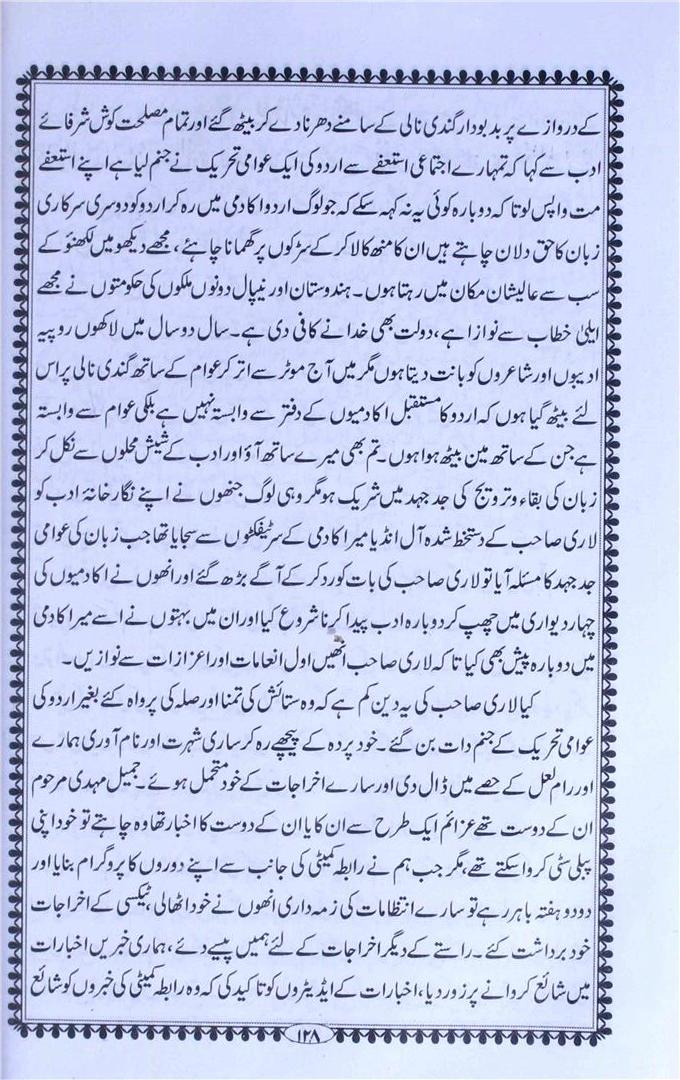 کے دروازے پر بدبودار گندی نالی کے سامنے دھرنا دے کر بیٹھ گئے اور تمام مصلحت کوش شرفائے
ادب سے کہا کہ تمہارے اجتماعی استعفے سے اردو کی ایک عوامی تحریک نے جنم لیا ہے اپنے استعفے
مت واپس لو تا کہ دوبارہ کوئی یہ نہ کہہ سکے کہ جو لوگ اردو اکادمی میں رہ کر اردو کو دوسری سرکاری
زبان کا حق دلان چاہتے ہیں ان کا منھ کالا کر کے سڑکوں پر گھمانا چاہئے، مجھے دیکھو میں لکھنؤ کے
سب سے عالیشان مکان میں رہتا ہوں۔ ہندوستان اور نیپال دونوں ملکوں کی حکومتوں نے مجھے
ایلیٰ خطاب سے نوازا ہے، دولت بھی خدا نے کافی دی ہے۔ سال دو سال میں لاکھوں روپیہ
ادیبوں اور شاعروں کو بانت دیتا ہوں مگر میں آج موٹر سے اتر کر عوام کے ساتھ گندی نالی پر اس
لئے بیٹھ گیا ہوں کہ اردو کا مستقبل اکادمیوں کے دفتر سے وابستہ نہیں ہے بلکی عوام سے وابستہ
ہے جن کے ساتھ مین بیٹھ ہوا ہوں۔ تم بھی میرے ساتھ آؤ اور ادب کے شیش محلوں سے نکل کر
زبان کی بقاء و ترویج کی جد جہد میں شریک ہو مگر وہی لوگ جنھوں نے اپنے نگار خانۂ ادب کو
لاری صاحب کے دستخط شدہ آل انڈیا میر اکادمی کے سرٹیفکٹوں سے سجایا تھا جب زبان کی عوامی
جد جہد کا مسئلہ آیا تو لاری صاحب کی بات کو رد کر کے آگے بڑھ گئے اور انھوں نے اکادمیوں کی
چہار دیواری میں چھپ کر دوبارہ ادب پیدا کرنا شروع کیا اور ان میں بہتوں نے اسے میر اکادمی
میں دوبارہ پیش بھی کیا تا کہ لاری صاحب انھیں اول انعامات اور اعزازات سے نوازیں۔
کیا لاری صاحب کی یہ دین کم ہے کہ وہ ستائش کی تمنا اور صلہ کی پرواہ کئے بغیر اردو کی
عوامی تحریک کے جنم دات بن گئے۔ خود پردہ کے پیچھے رہ کر ساری شہرت اور نام آوری ہمارے
اور رام لعل کے حصے میں ڈال دی اور سارے اخراجات کے خود متحمل ہوئے۔ جمیل مہدی مرحوم
ان کے دوست تھے عزائم ایک طرح سے ان کا یا ان کے دوست کا اخبار تھا وہ چاہتے تو خود اپنی
پبلی سٹی کروا سکتے تھے، مگر جب ہم نے رابطہ کمیٹی کی جانب سے اپنے دوروں کا پروگرام بنایا اور
دو دو ہفتہ باہر رہے تو سارے انتظامات کی زمہ داری انھوں نے خود اٹھالی، ٹیکسی کے اخراجات
خود برداشت کئے۔ راستے کے دیگر اخراجات کے لئے ہمیں پیسے دئے، ہماری خبریں اخبارات
میں شائع کروانے پر زور دیا، اخبارات کے ایڈیٹروں کو تاکید کی کہ وہ رابطہ کمیٹی کی خبروں کو شائع
۱۲۸